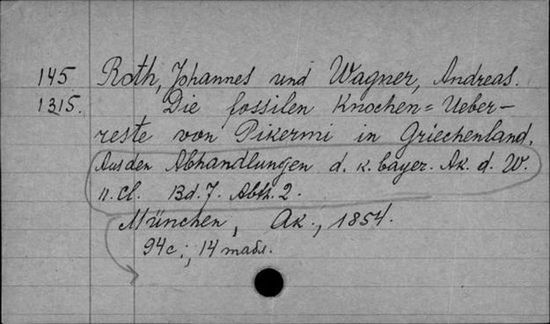 145 Roth, Johannes und Wagner, Andreas.
1315. Die fossilen Knochen=Ueber-
reste von Pikermi in Griechenland.
Aus den Abhandlungen d. k. bayer. Ak. d. W.
II. Cl. Bd. 7. Abth. 2.
München, Ak., 1854.
94 с.; 14 табл.